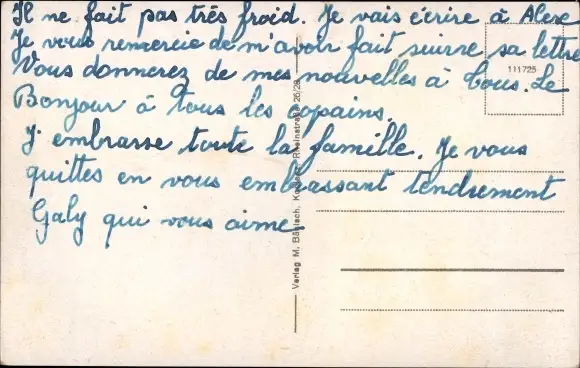 Il ne fait pas très froid. Je vais écrire à Alex
Je vous remercie de m'avoir fait suivre sa lettre
Vous donnerez de mes nouvelles à tous. Le
Bonjour à tous les copains.
J'embrasse toute la famille. Je vous
quittes en vous embrassant tendrement
Galy qui vous aime
111725
Verlag M. Rheinstraße 26/28